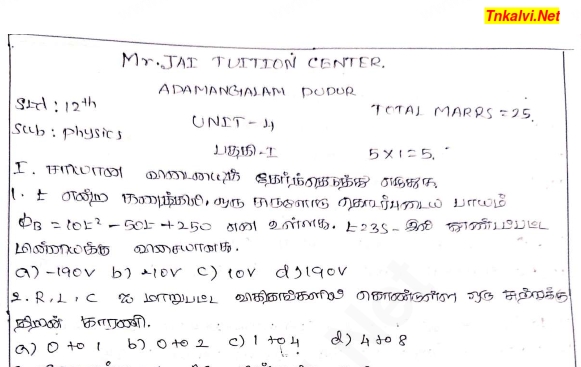 Tnkalvi.Net
Mr. JAI TUITION CENTER.
ADAMANGALAM PUDUR
Std : 12th
TOTAL MARRS = 25.
Sub : physics
UNIT - 4
பகுதி - I 5 x 1 = 5.
I. சரியான விடையைத் தேர்ந்தெடுத்து எழுதுக
1. t என்ற கணத்தில், ஒரு சுருளோடு தொடர்புடைய பாயம்
ΦB = 10t² - 50t + 250 என உள்ளது. t = 3S - இல் தூண்டப்பட்ட
மின்னியக்கு விசையானது.
a) -190V b) -10V c) 10V d) 190V
2. R, L, C % மாறுபட்ட கொண்டுள்ள ஒரு சுற்றுக்கு
திறன் காரணி.
a) 0 to 1 b) 0 to 2 c) 1 to 4 d) 4 to 8